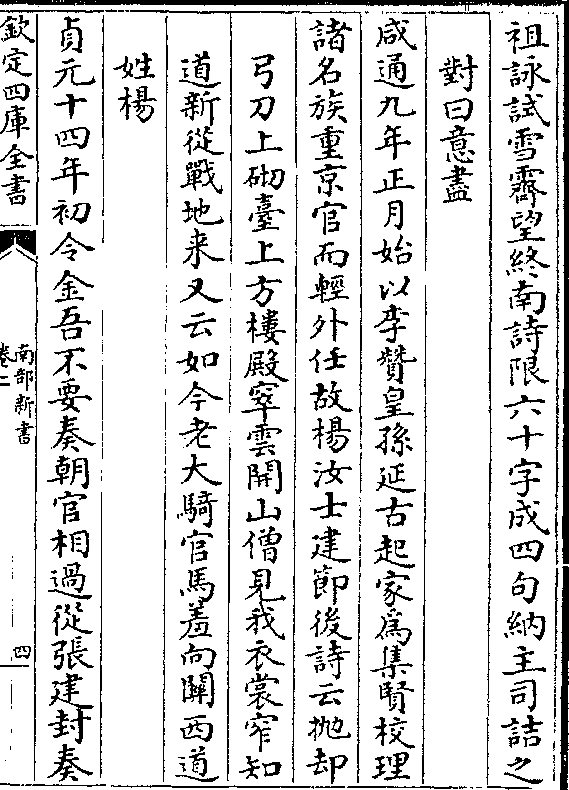 祖詠試雪霽望終南詩限六十字成四句納主司詰之
對曰意盡
咸通九年正月始以李贊皇孫延古起家爲集賢校理
諸名族重京官而輕外任故楊汝士建節後詩云抛却
弓刀上砌臺上方樓殿窣雲開山僧見我衣裳窄知
道新從戰地来又云如今老大騎官馬羞向關西道
姓楊
貞元十四年初令金吾不要奏朝官相過從張建封奏
欽定四庫全書
南部新書
卷二
四